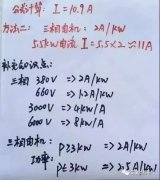 公式计算: I = 10.9A
方法二: 三相电机: 2A/kw
5.5kw电流 I = 5.5×2 ≈ 11A
补充知识点:
三相 380V => 2A/kw
660V => 1.2A/kw
3000V => 4A/kw
6000V => 8kw/A
三相电机: P≥3kw => 2A/kw
功率: P≤3kw => 2.5A/kw